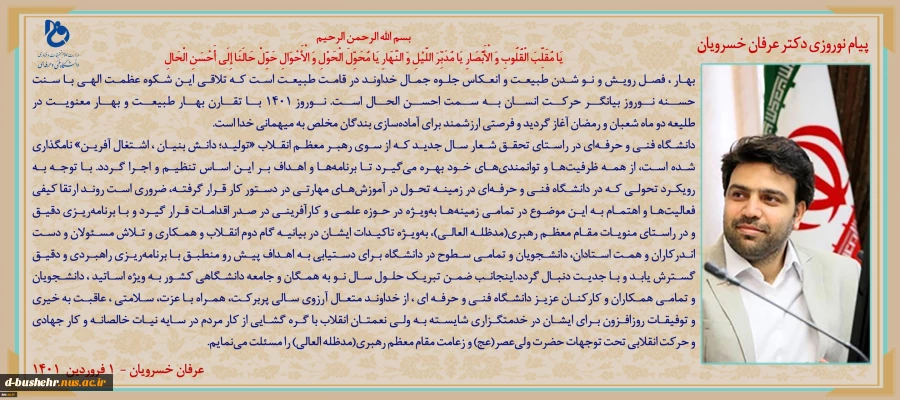 پیام نوروزی دکتر عرفان خسرویان
بسم الله الرحمن الرحیم
یَا مُقَلِّبَ الْقُلُوبِ وَ الْأَبْصَارِ یَا مُدَبِّرَ اللَّیْلِ وَ النَّهَارِ یَا مُحَوِّلَ الْحَوْلِ وَ الْأَحْوَالِ حَوِّلْ حَالَنَا إِلَى أَحْسَنِ الْحَالِ
بهار، فصل رویش و نو شدن طبیعت و انعکاس جلوه جمال خداوند در قامت طبیعت است که تلاقی این شکوه عظمت الهی با سنت
حسنه نوروز بیانگر حرکت انسان به سمت احسن الحال است. نوروز ۱۴۰۱ با تقارن بهار طبیعت و بهار معنویت در
طلیعه دو ماه شعبان و رمضان آغاز گردید و فرصتی ارزشمند برای آماده‌سازی بندگان مخلص به میهمانی خدا است.
دانشگاه فنی و حرفه‌ای در راستای تحقق شعار سال جدید که از سوی رهبر معظم انقلاب «تولید؛ دانش بنیان ، اشتغال آفرین» نامگذاری
شده است، از همه ظرفیت‌ها و توانمندی‌های خود بهره می‌گیرد تا برنامه‌ها و اهداف بر این اساس تنظیم و اجرا گردد. با توجه به
رویکرد تحولی که در دانشگاه فنی و حرفه‌ای در زمینه تحول در آموزش‌های مهارتی در دستور کار قرار گرفته، ضروری است روند ارتقا کیفی
فعالیت‌ها و اهتمام به این موضوع در تمامی زمینه‌ها به‌ویژه در حوزه علمی و کارآفرینی در صدر اقدامات قرار گیرد و با برنامه‌ریزی دقیق
و در راستای منویات مقام معظم رهبری(مدظله العالی)، به‌ویژه تاکیدات ایشان در بیانیه گام دوم انقلاب و همکاری و تلاش مسئولان و دست
اندرکاران و همت استادان، دانشجویان و تمامی سطوح در دانشگاه برای دستیابی به اهداف پیش رو منطبق با برنامه‌ریزی راهبردی و دقیق
گسترش یابد و با جدیت دنبال گردد.اینجانب ضمن تبریک حلول سال نو به همگان و جامعه دانشگاهی کشور به ویژه اساتید ، دانشجویان
و تمامی همکاران و کارکنان عزیز دانشگاه فنی و حرفه ای ، از خداوند متعال آرزوی سالی پربرکت، همراه با عزت، سلامتی ، عاقبت به خیری
و توفیقات روزافزون برای ایشان در خدمتگزاری شایسته به ولی نعمتان انقلاب با گره گشایی از کار مردم در سایه نیات خالصانه و کار جهادی
و حرکت انقلابی تحت توجهات حضرت ولی‌عصر(عج) و زعامت مقام معظم رهبری(مدظله العالی) را مسئلت می‌نمایم.
عرفان خسرویان - ۱ فروردین ۱۴۰۱
d-bushehr.nus.ac.ir